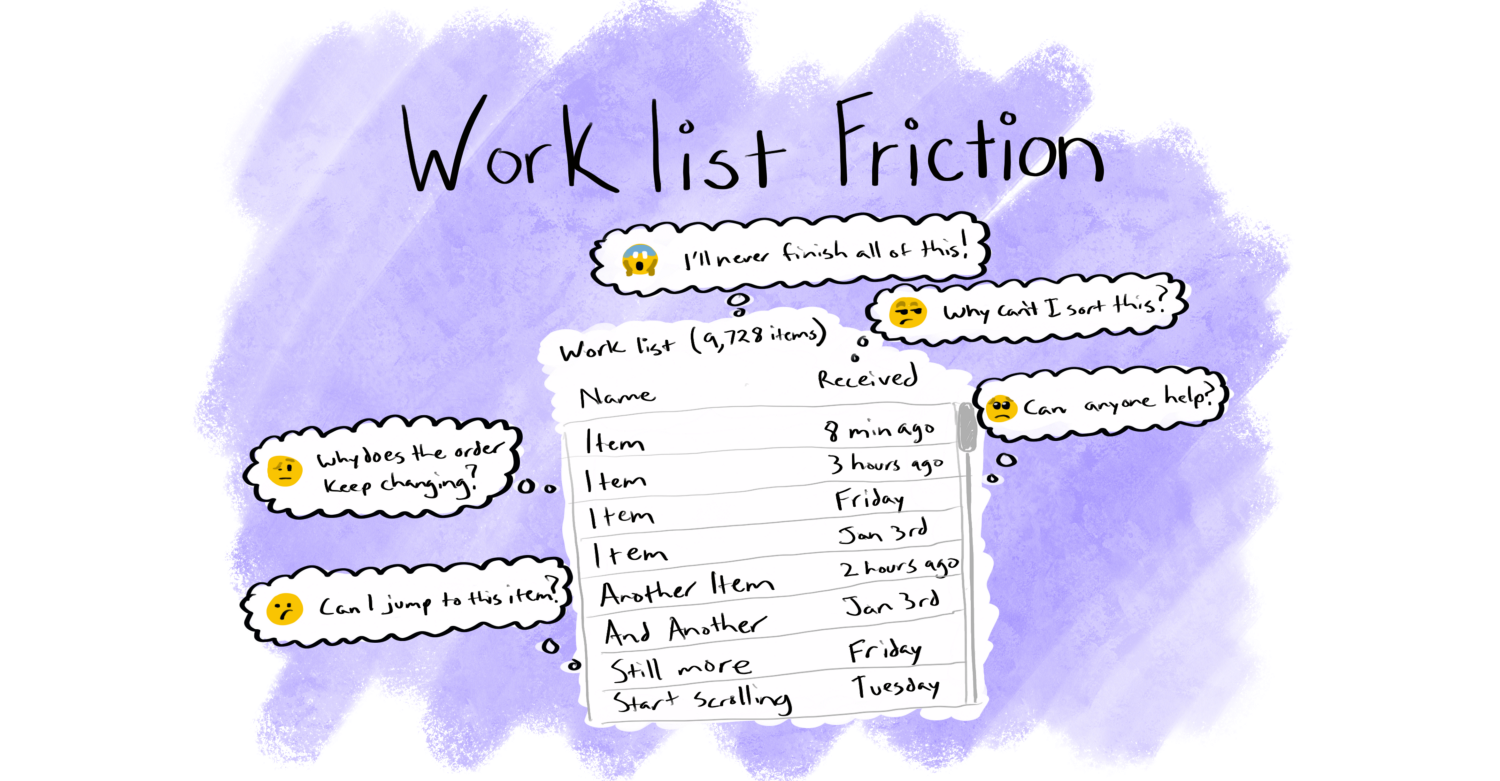 Work list Friction
I'll never finish all of this!
Why can't I sort this?
Work list (9,728 items)
Name Received
Can anyone help?
Item 8 min ago
Item 3 hours ago
Item Friday
Item Jan 3rd
Another Item 2 hours ago
And Another Jan 3rd
Still more Friday
Start scrolling Tuesday
Why does the order
keep changing?
Can I jump to this item?